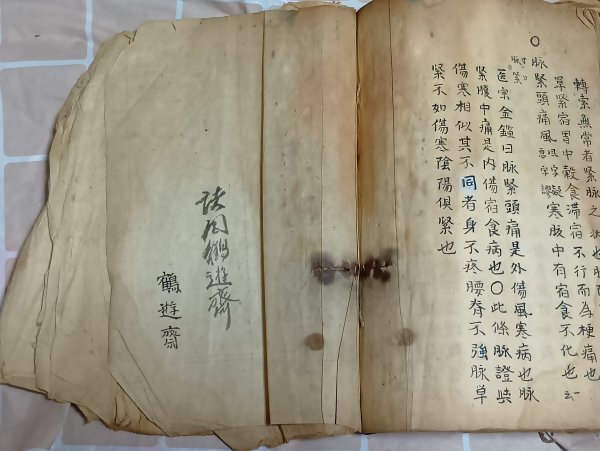 〇
轉索無常者緊脈之狀也脈
單緊宿胃中穀食滯宿不行而為梗痛也
脈緊頭痛風寒腹中有宿食不化也
医宗金鑑曰脈緊頭痛是外傷風寒病也脈
緊腹中痛是內傷宿食病也〇此條脈證與
傷寒相似其不同者身不疼腰脊不強脈单
緊不如傷寒陰陽俱緊也
鶴遊齋
鶴遊齋